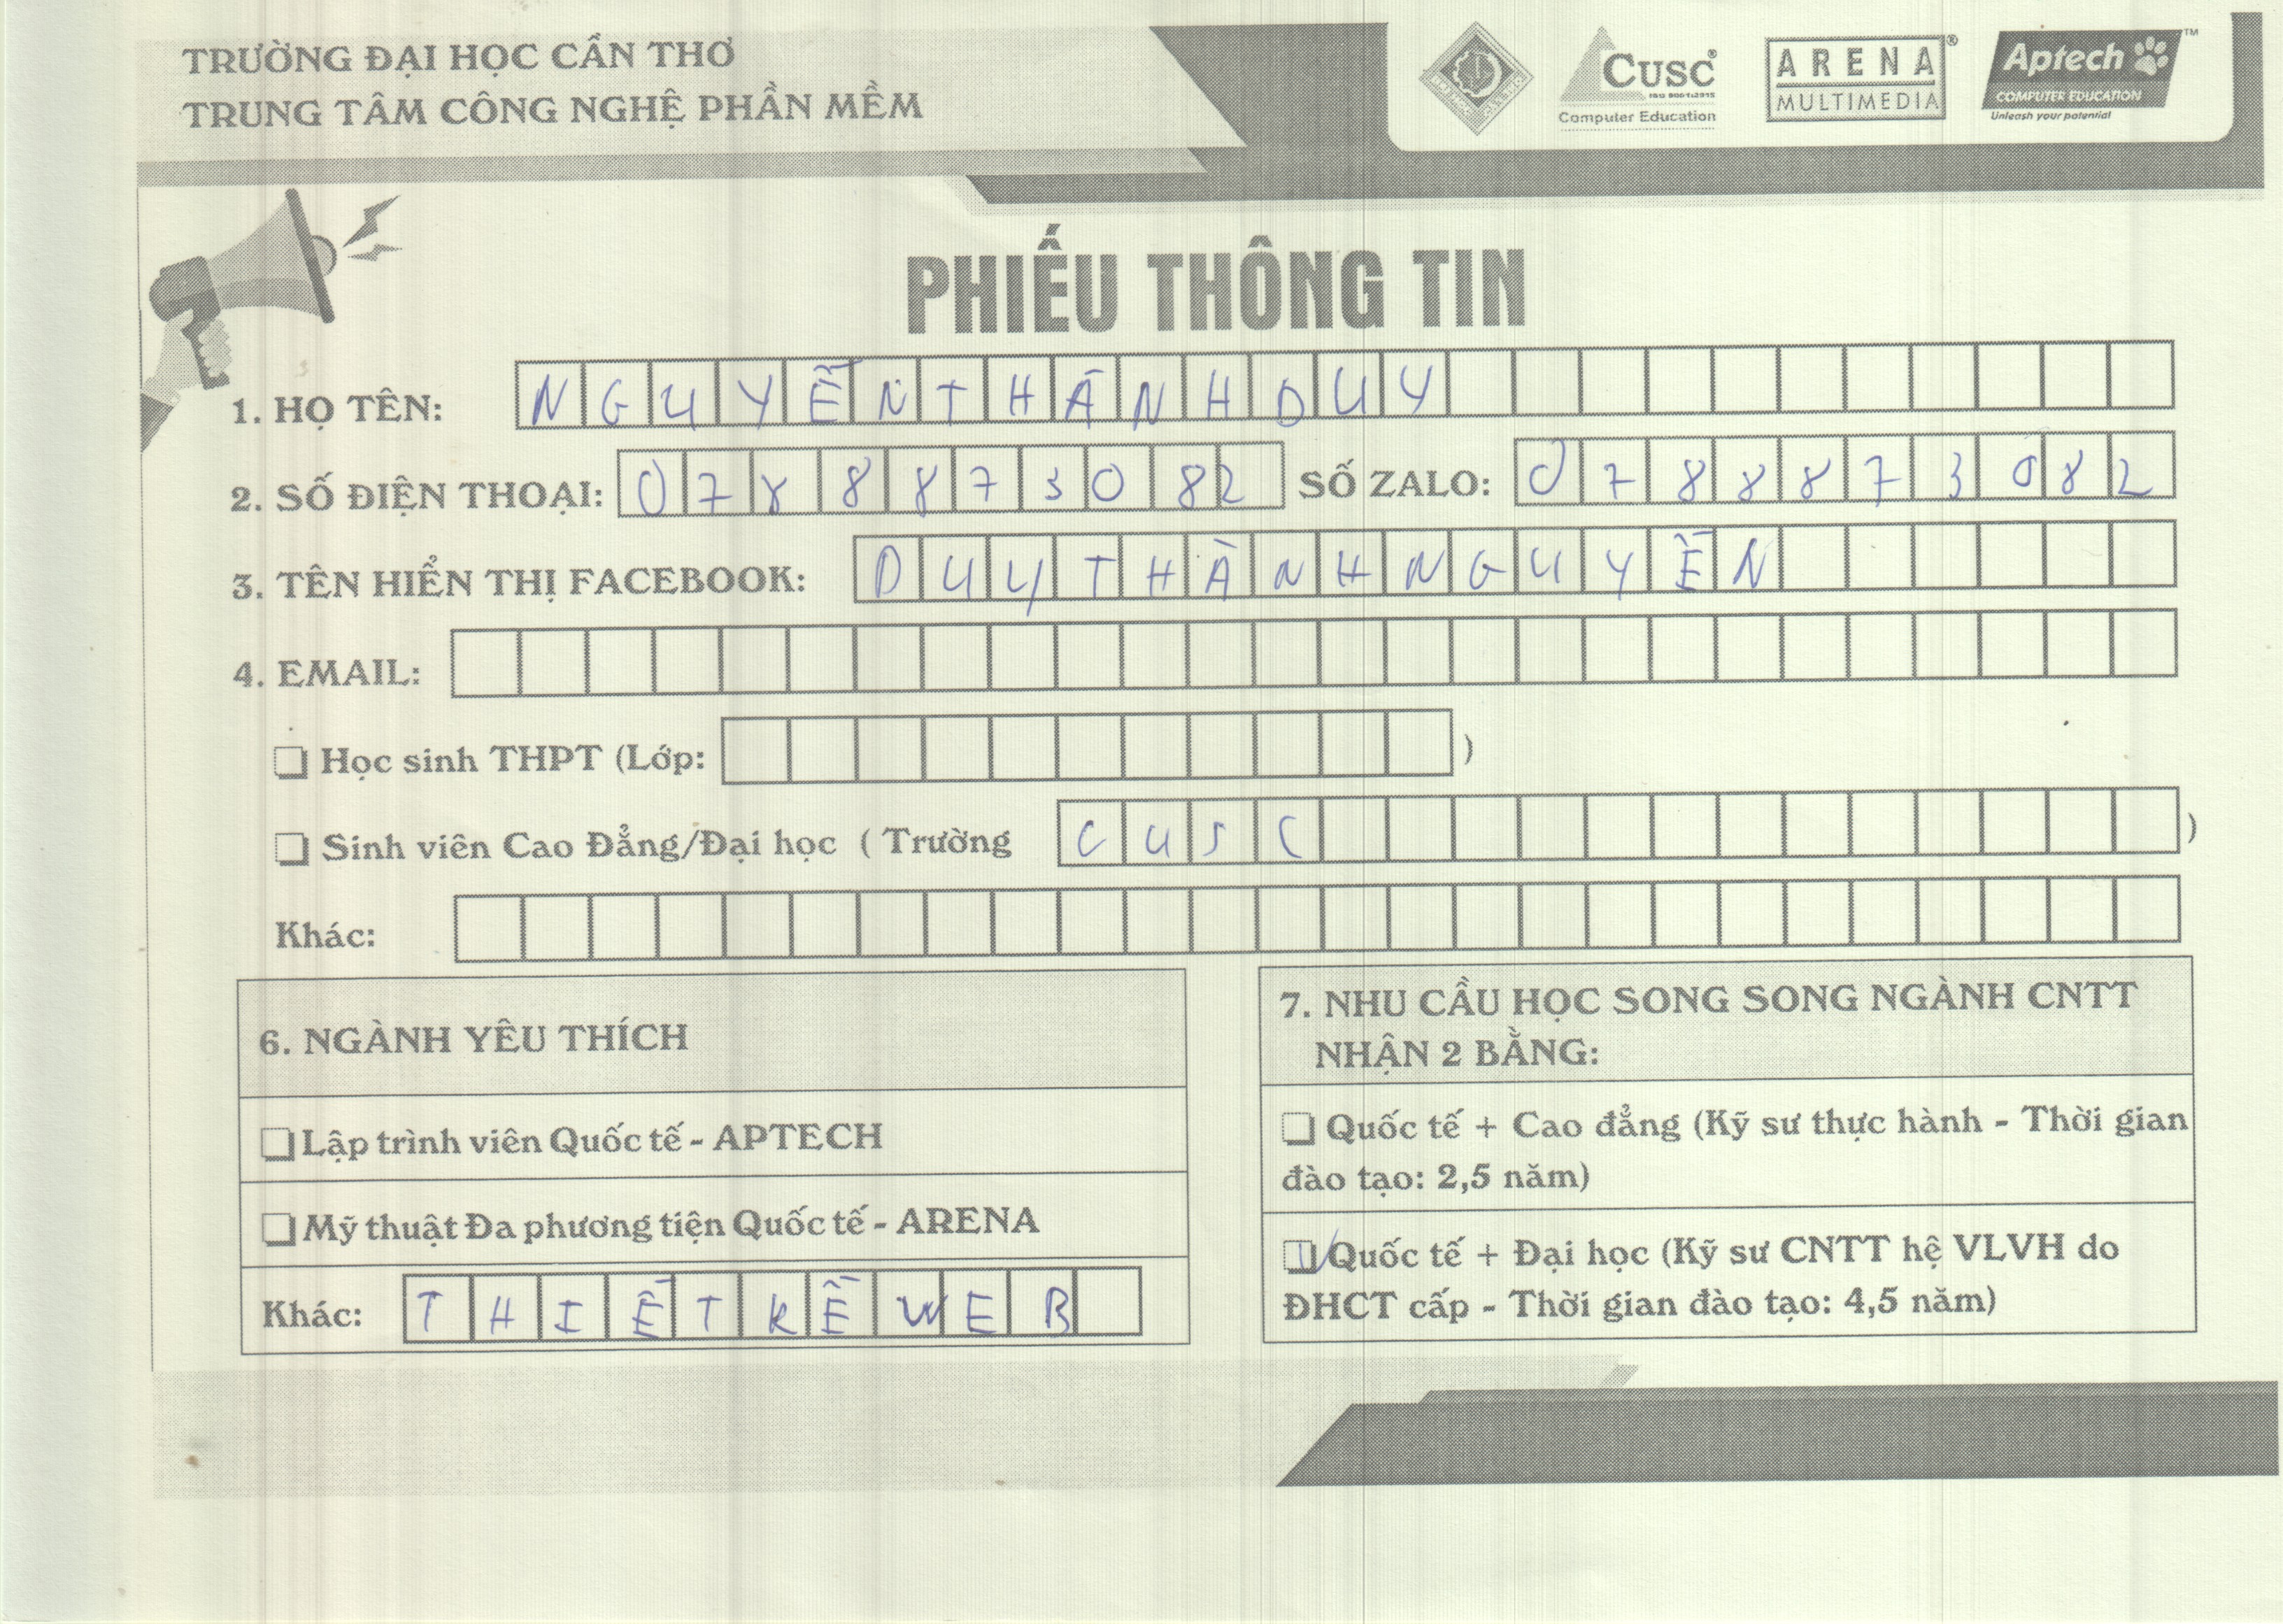 TRƯỜNG ĐẠI HỌC CẦN THƠ
TRUNG TÂM CÔNG NGHỆ PHẦN MỀM
CUSC®
ISO 9001:2015
Computer Education
ARENA®
MULTIMEDIA
Aptech™
COMPUTER EDUCATION
Unleash your potential
PHIẾU THÔNG TIN
1. HỌ TÊN: NGUYỄN THÀNH DUY
2. SỐ ĐIỆN THOẠI: 0788873082 SỐ ZALO: 0788873082
3. TÊN HIỂN THỊ FACEBOOK: DUY THÀNH NGUYỄN
4. EMAIL:
Học sinh THPT (Lớp: )
Sinh viên Cao Đẳng/Đại học ( Trường CUSC )
Khác:
6. NGÀNH YÊU THÍCH
Lập trình viên Quốc tế - APTECH
Mỹ thuật Đa phương tiện Quốc tế - ARENA
Khác: THIẾT KẾ WEB
7. NHU CẦU HỌC SONG SONG NGÀNH CNTT
NHẬN 2 BẰNG:
Quốc tế + Cao đẳng (Kỹ sư thực hành - Thời gian
đào tạo: 2,5 năm)
Quốc tế + Đại học (Kỹ sư CNTT hệ VLVH do
ĐHCT cấp - Thời gian đào tạo: 4,5 năm)